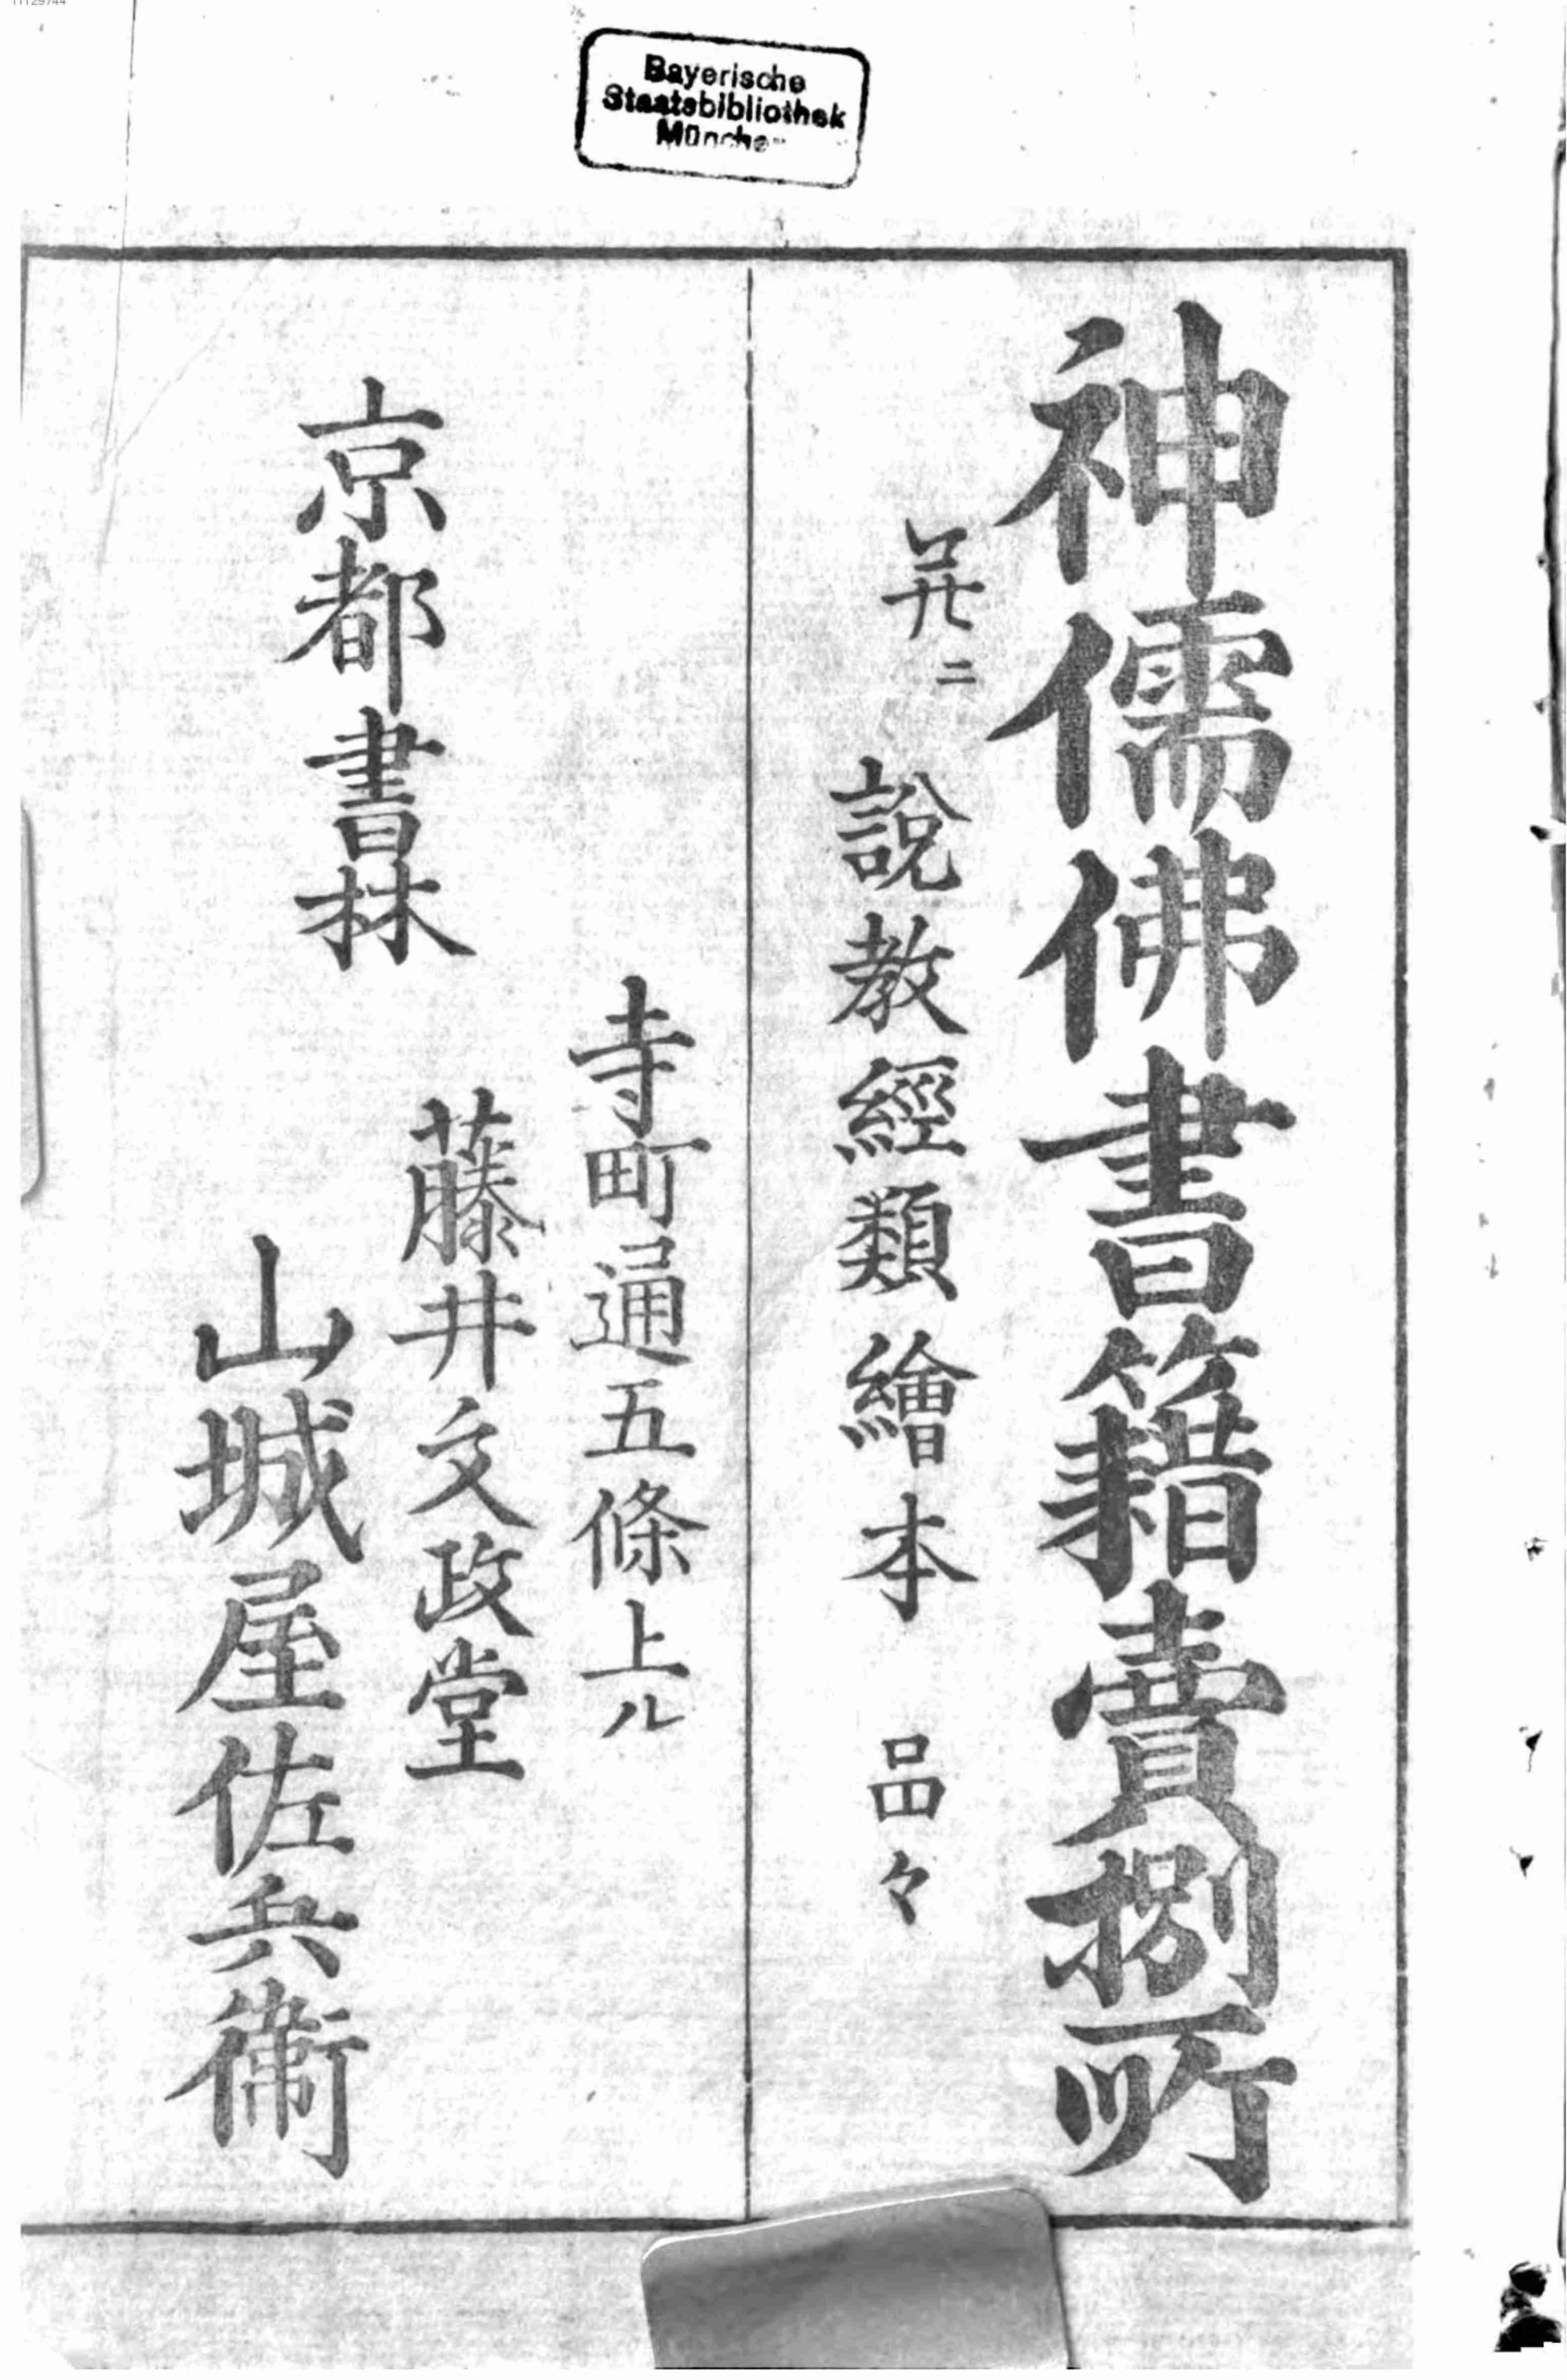 11129744
Bayerische
Staatsbibliothek
München
神儒佛書籍賣捌所
并ニ
說教經類繪本 品々
寺町通五條上ル
京都書林
藤井文政堂
山城屋佐兵衛